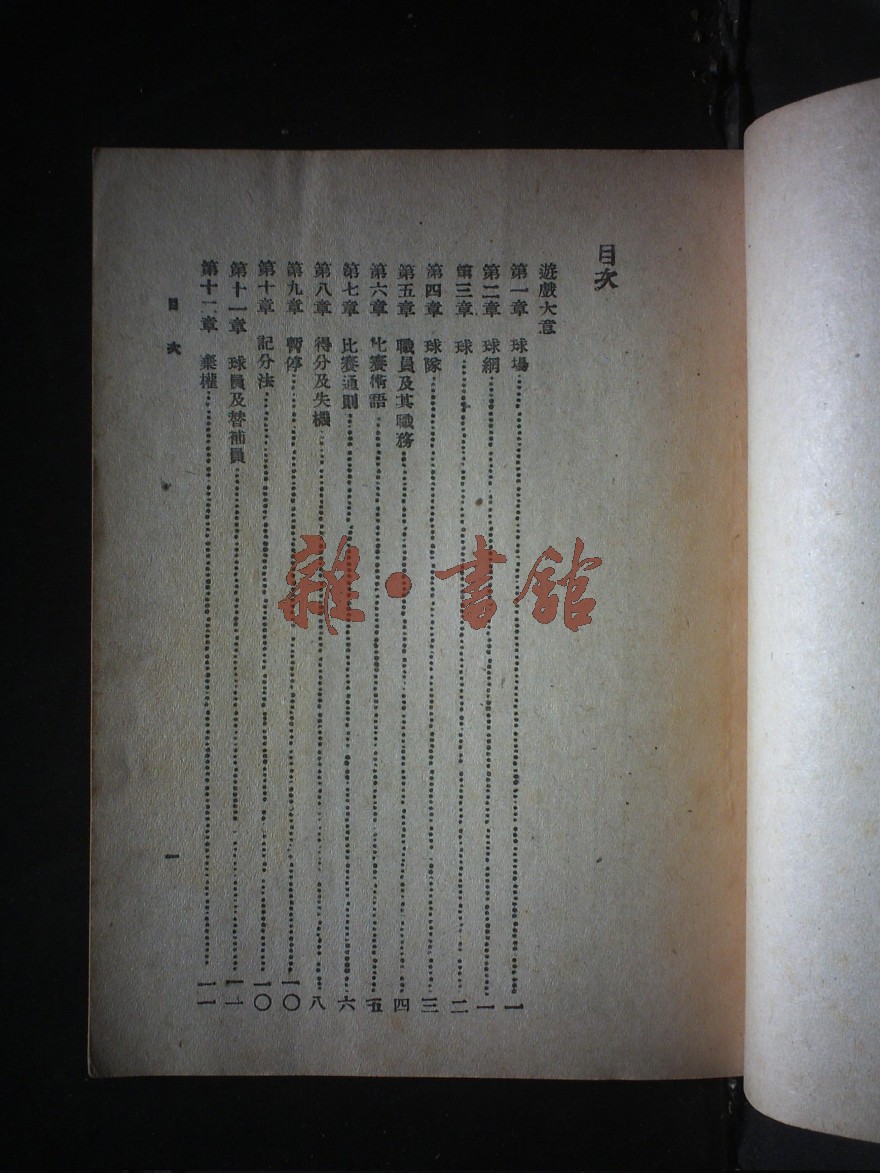 目次
遊戲大意
第一章 球場……一
第二章 球網……一
第三章 球……二
第四章 球隊……三
第五章 職員及其職務……四
第六章 比賽術語……五
第七章 比賽通則……六
第八章 得分及失機……八
第九章 暫停……一〇
第十章 記分法……一〇
第十一章 球員及替補員……一一
第十二章 棄權……一一
目次
一
雜·書館